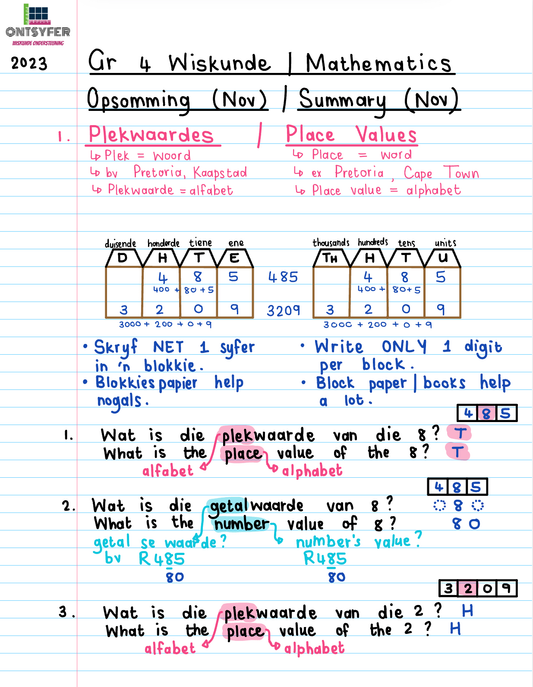 ONTSYFER
WISKUNDE ONDERSTEUNING
2023 Gr 4 Wiskunde | Mathematics
Opsomming (Nov) | Summary (Nov)
1. Plekwaardes | Place Values
↳ Plek = woord ↳ Place = word
↳ bv Pretoria, Kaapstad ↳ ex Pretoria, Cape Town
↳ Plekwaarde = alfabet ↳ Place value = alphabet
duisende honderde tiene ene thousands hundreds tens units
D H T E TH H T U
4 8 5 485 4 8 5
400 + 80+5 400 + 80+5
3 2 0 9 3209 3 2 0 9
3000 + 200 + 0 + 9 3000 + 200 + 0 + 9
• Skryf NET 1 syfer • Write ONLY 1 digit
in 'n blokkie. per block.
• Blokkiespapier help • Block paper | books help
nogals. a lot.
4 8 5
1. Wat is die plekwaarde van die 8? T
What is the place value of the 8? T
alfabet alphabet
4 8 5
2. Wat is die getalwaarde van 8? 8
What is the number value of 8? 80
getal se waarde? number's value?
bv R485 R485
80 80
3 2 0 9
3. Wat is die plekwaarde van die 2? H
What is the place value of the 2? H
alfabet alphabet